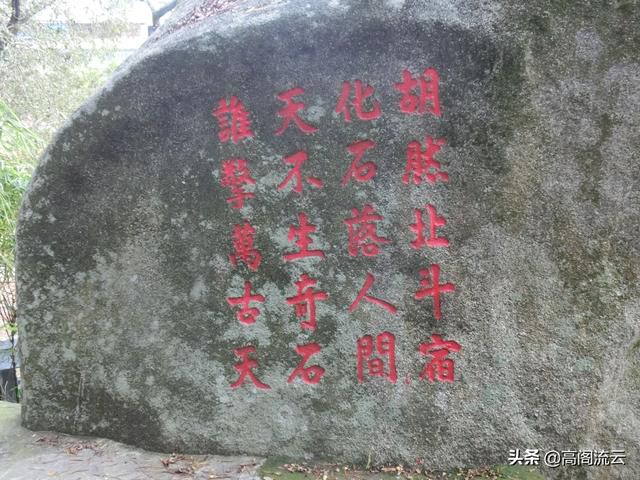 胡然北斗宿
化石落人間
天不生奇石
誰擎萬古天
头条 @高阁流云